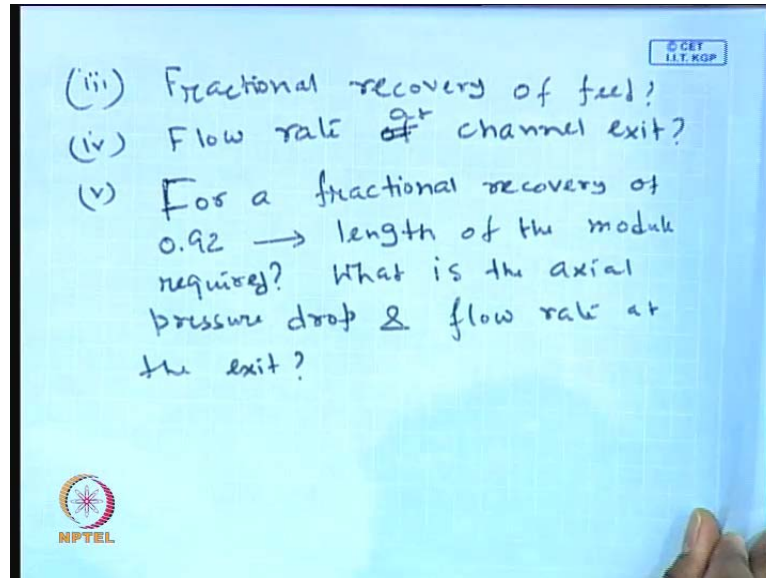 © CET
I.I.T. KGP
(iii) Fractional recovery of feed?
(iv) Flow rate at channel exit?
(v) For a fractional recovery of
0.92 → length of the module
required? What is the axial
pressure drop & flow rate at
the exit?
NPTEL